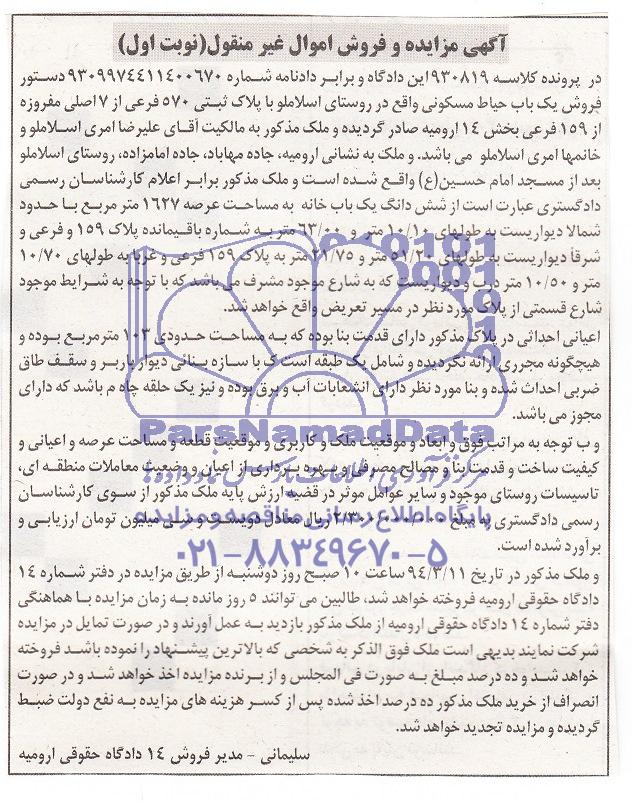 آگهی مزایده و فروش اموال غیر منقول(نوبت اول)
در پرونده کلاسه ۹۳۰۸۱۹ این دادگاه و برابر دادنامه شماره ۹۳۰۹۹۷۴۴۱۱۴۰۰۶۷۰ دستور
فروش یک باب حیاط مسکونی واقع در روستای اسلاملو با پلاک ثبتی ۵۷۰ فرعی از ۷ اصلی مفروزه
از ۱۵۹ فرعی بخش ۱۴ ارومیه صادر گردیده و ملک مذکور به مالکیت آقای علیرضا امری اسلاملو و
خانمها امری اسلاملو می باشد. و ملک به نشانی ارومیه، جاده مهاباد، جاده امامزاده، روستای اسلاملو
بعد از مسجد امام حسین(ع) واقع شده است و ملک مذکور برابر اعلام کارشناسان رسمی
دادگستری عبارت است از شش دانگ یک باب خانه به مساحت عرصه ۱۶۲۷ متر مربع با حدود
شمالا دیواریست به طولهای ۱۰/۱۰ متر و ۶۳/۰۰ متر به شماره باقیمانده پلاک ۱۵۹ و فرعی و
شرقاً دیواریست به طولهای ۵۱/۲۰ متر و ۲۱/۷۵ متر به پلاک ۱۵۹ فرعی و غربا به طولهای ۱۰/۷۰
متر و ۱۰/۵۰ متر درب و دیواریست که به شارع موجود مشرف می باشد که با توجه به شرایط موجود
شارع قسمتی از پلاک مورد نظر در مسیر تعریض واقع خواهد شد.
اعیانی احداثی در پلاک مذکور دارای قدمت بنا بوده که به مساحت حدودی ۱۰۳ مترمربع بوده و
هیچگونه مجرری ارائه نگردیده و شامل یک طبقه است ک با سازه بنائی دیوار باربر و سقف طاق
ضربی احداث شده و بنا مورد نظر دارای انشعابات آب و برق بوده و نیز یک حلقه چاه م باشد که دارای
مجوز می باشد.
و ب توجه به مراتب فوق و ابعاد و موقعیت ملک و کاربری و موقعیت قطعه و مساحت عرصه و اعیانی و
کیفیت ساخت و قدمت بنا و مصالح مصرفی و بهره برداری از اعیان و وضعیت معاملات منطقه ای،
تاسیسات روستای موجود و سایر عوامل موثر در قضیه ارزش پایه ملک مذکور از سوی کارشناسان
رسمی دادگستری به مبلغ ۲/۳۰۰/۰۰۰/۰۰۰ ریال معادل دویست و سی میلیون تومان ارزیابی و
برآورد شده است.
و ملک مذکور در تاریخ ۹۴/۳/۱۱ ساعت ۱۰ صبح روز دوشنبه از طریق مزایده در دفتر شماره ۱۴
دادگاه حقوقی ارومیه فروخته خواهد شد، طالبین می توانند ۵ روز مانده به زمان مزایده با هماهنگی
دفتر شماره ۱۴ دادگاه حقوقی ارومیه از ملک مذکور بازدید به عمل آورند و در صورت تمایل در مزایده
شرکت نمایند بدیهی است ملک فوق الذکر به شخصی که بالاترین پیشنهاد را نموده باشد فروخته
خواهد شد و ده درصد مبلغ به صورت فی المجلس و از برنده مزایده اخذ خواهد شد و در صورت
انصراف از خرید ملک مذکور ده درصد اخذ شده پس از کسر هزینه های مزایده به نفع دولت ضبط
گردیده و مزایده تجدید خواهد شد.
سلیمانی - مدیر فروش ۱۴ دادگاه حقوقی ارومیه
ParsNamadData
مرکز فرآوری اطلاعات پارس نماد داده ها
پایگاه اطلاع رسانی مناقصه و مزایده
۰۲۱-۸۸۳۴۹۶۷۰-۵